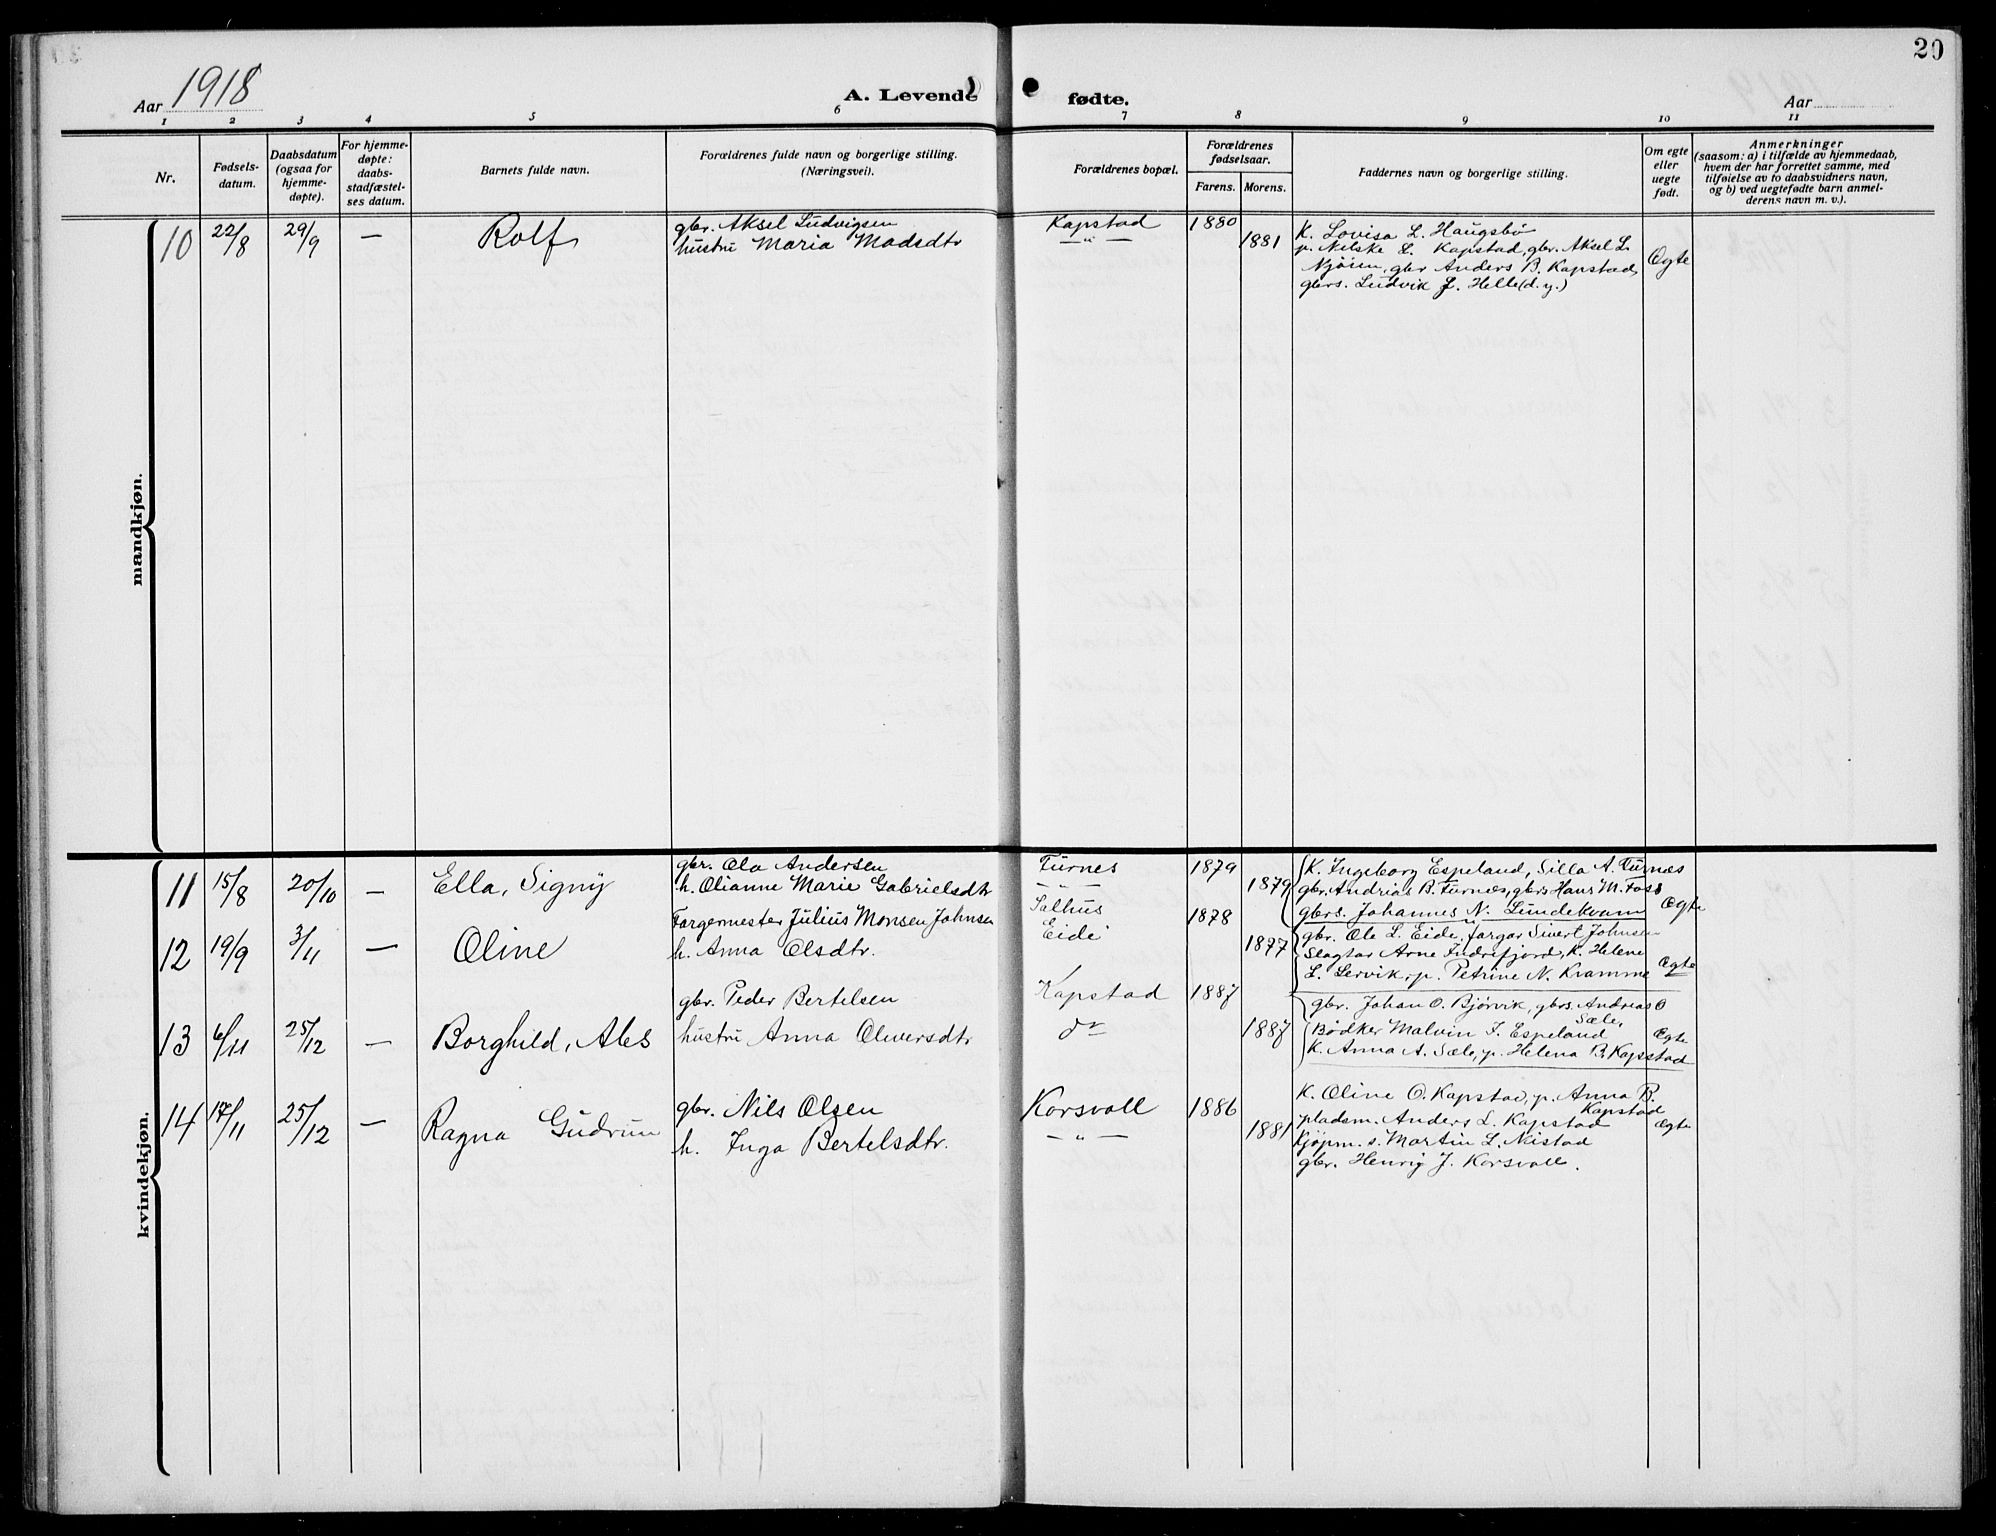 20
Aar 1918
A. Levende fødte.
Aar
1 2 3 4 5 6 7 8 9 10 11
Nr.
Fødsels-
datum.
Daabsdatum
(ogsaa for
hjemme-
døpte).
For hjemme-
døpte:
daabs-
stadfæstel-
ses datum.
Barnets fulde navn.
Forældrenes fulde navn og borgerlige stilling.
(Næringsvei).
Forældrenes bopæl.
Forældrenes
fødselsaar.
Farens. Morens.
Faddernes navn og borgerlige stilling.
Om egte
eller
uegte
født.
Anmerkninger
(saasom: a) i tilfælde av hjemmedaab,
hvem der har forrettet samme, med
tilføielse av to daabsvidners navn,
og b) ved uegtefødte barn anmel-
derens navn m. v.).
mandkjøn.
10 22/8 29/9 — Rolf
gbr. Aksel Ludvigsen
hustru Maria Madsdtr
Kapstad
— " —
1880
1881
K. Lovisa L. Haugsbø
p. Nelske L. Kapstad, gbr. Aksel L.
gbr Anders B. Kapstad,
gbrs. Ludvik J. Helle (d. y.)
Egte
kvindekjøn.
11 15/8 20/10 — Ella, Signy
gbr. Ola Andersen
h. Olianne Marie Gabrielsdtr
Furnes
— " —
1879
1879
K. Ingeborg Espeland, Silla A. Furnes
gbr. Andrias B. Furnes, gbrs Hans M. Foss
gbrs. Johannes N. Lundekvam
Egte
12 19/9 3/11 — Oline
Fargermester Julius Monsen Johnsen
h. Anna Olsdtr.
Salhus
Eide
1878
1877
gbr. Ole L. Eide, farger Sivert Johnsen
Slagtar Arne Indrefjord, K. Helene
L. Lervik, p. Petrine N. Kramme
Egte
13 6/11 25/12 — Borghild, Ales
gbr. Peder Bertelsen
hustru Anna Oliversdtr
Kapstad
do
1887
1887
gbr. Johan O. Bjørvik, gbrs. Andreas O
Sæle,
Bødker Malvin J. Espeland
K. Anna A. Sæle, p. Helena B. Kapstad
Egte
14 17/11 25/12 — Ragna Gudrun
gbr. Nils Olsen
h. Inga Bertelsdtr.
Korsvoll
— " —
1886
1881
K. Oline O. Kapstad, p. Anna B.
Kapstad
pladsm. Anders L. Kapstad
Kjøpm. s. Martin L. Neistad
gbr. Henrig J. Korsvoll.
Egte